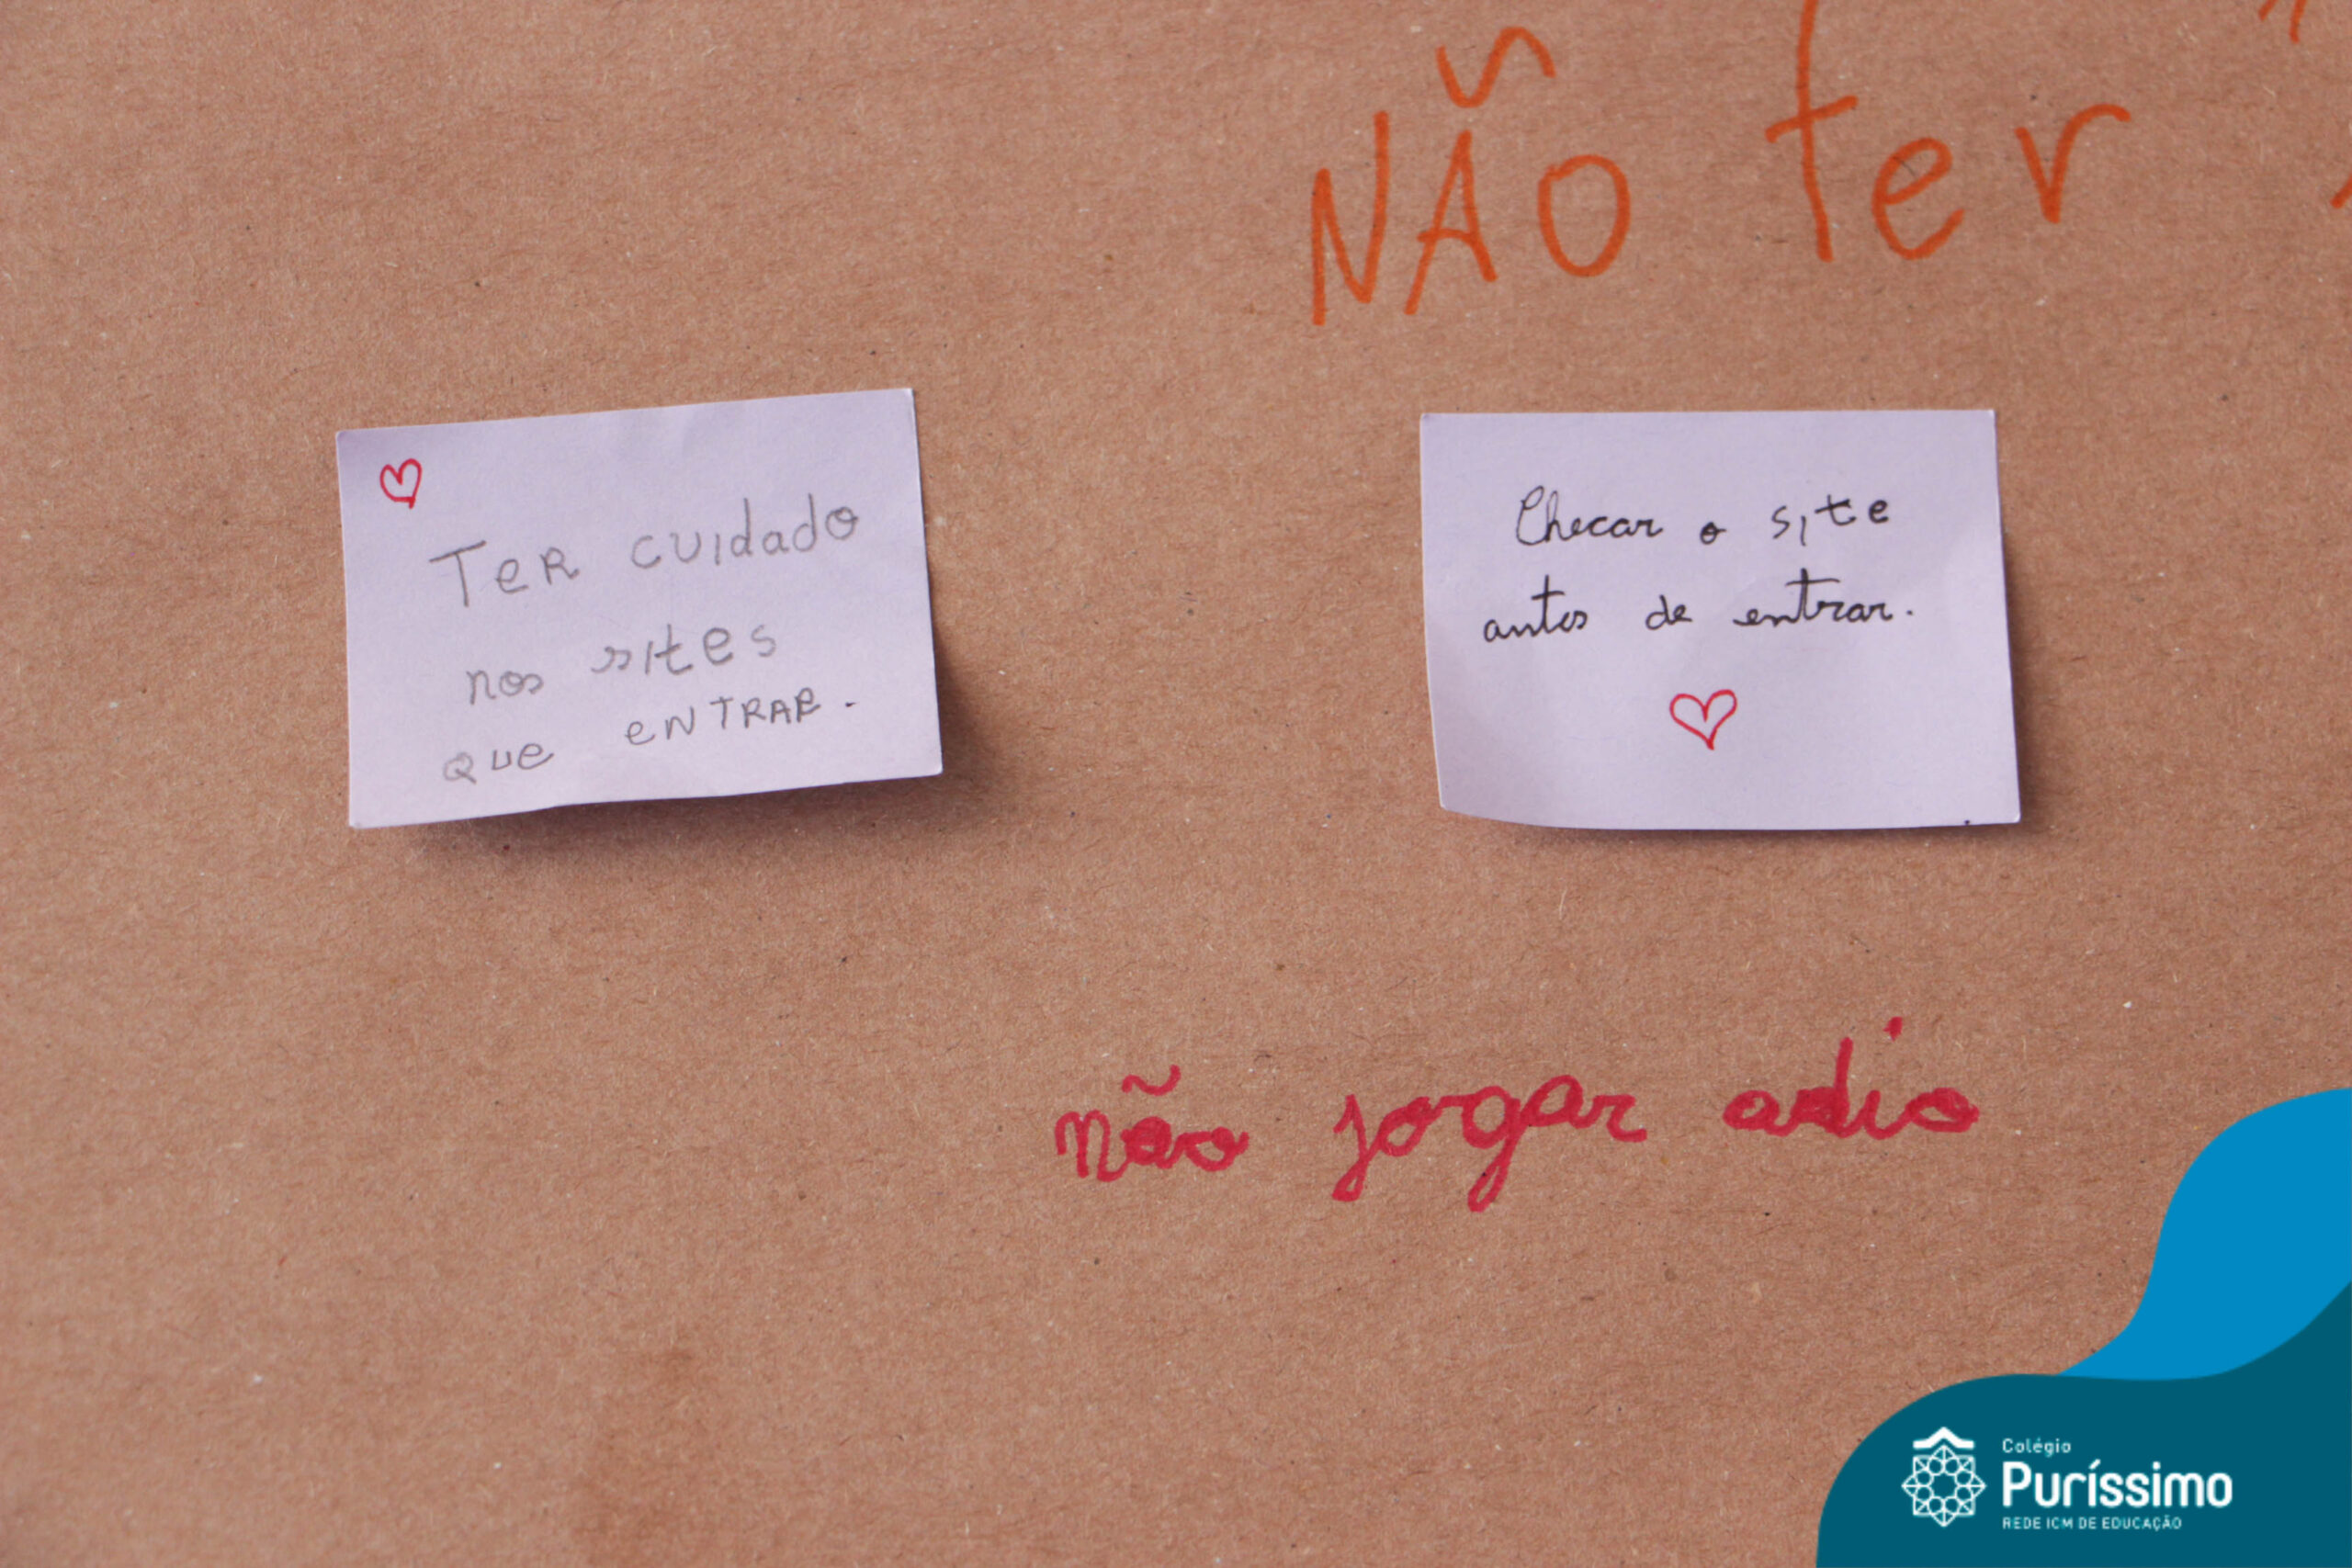 NÃO ter
Ter cuidado
nos sites
que entrar.
Checar o site
antes de entrar.
não jogar odio
Colégio
Puríssimo
REDE ICM DE EDUCAÇÃO